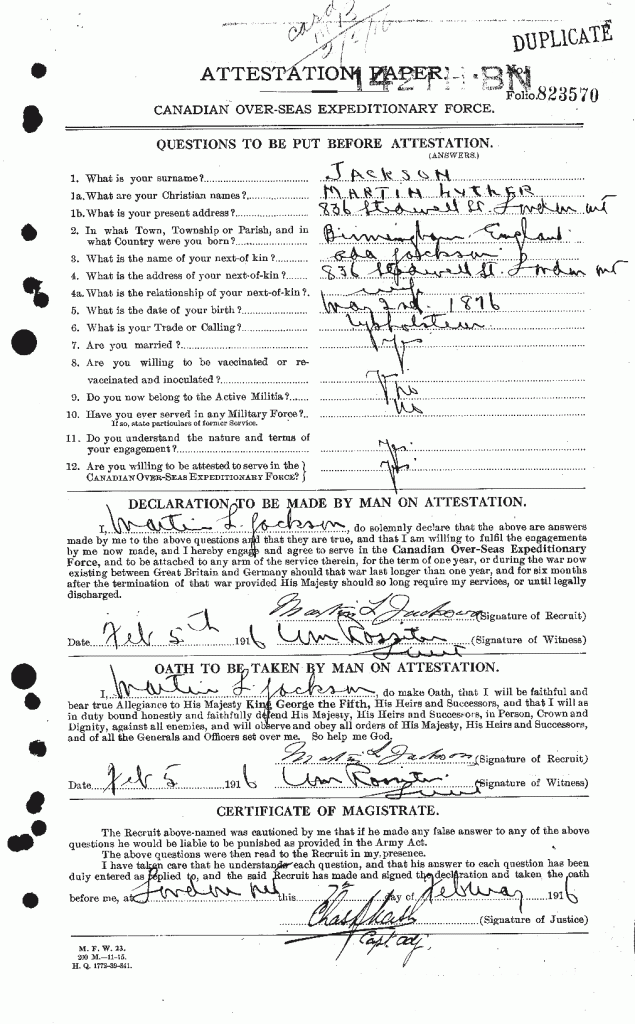 card
DUPLICATE
ATTESTATION PAPER. No.
142TH. BN
Folio. 823570
CANADIAN OVER-SEAS EXPEDITIONARY FORCE.
QUESTIONS TO BE PUT BEFORE ATTESTATION.
(ANSWERS.)
1. What is your surname? JACKSON
1a. What are your Christian names? MARTIN LUTHER
1b. What is your present address? 836 St London Ont
2. In what Town, Township or Parish, and in
what Country were you born? Birmingham England
3. What is the name of your next-of kin? Ada Jackson
4. What is the address of your next-of-kin? 836 St. London Ont
4a. What is the relationship of your next-of-kin? wife
5. What is the date of your birth? 2nd. 1876
6. What is your Trade or Calling? Upholsterer
7. Are you married? Yes
8. Are you willing to be vaccinated or re-
vaccinated and inoculated? Yes
9. Do you now belong to the Active Militia? No
10. Have you ever served in any Military Force? No
If so, state particulars of former Service.
11. Do you understand the nature and terms of
your engagement? Yes
12. Are you willing to be attested to serve in the
CANADIAN OVER-SEAS EXPEDITIONARY FORCE? Yes
DECLARATION TO BE MADE BY MAN ON ATTESTATION.
I, Martin L. Jackson, do solemnly declare that the above are answers
made by me to the above questions and that they are true, and that I am willing to fulfil the engagements
by me now made, and I hereby engage and agree to serve in the Canadian Over-Seas Expeditionary
Force, and to be attached to any arm of the service therein, for the term of one year, or during the war now
existing between Great Britain and Germany should that war last longer than one year, and for six months
after the termination of that war provided His Majesty should so long require my services, or until legally
discharged.
Martin L Jackson (Signature of Recruit)
Date Feb 5th 1916 Wm Rossiter Lieut (Signature of Witness)
OATH TO BE TAKEN BY MAN ON ATTESTATION.
I, Martin L. Jackson, do make Oath, that I will be faithful and
bear true Allegiance to His Majesty King George the Fifth, His Heirs and Successors, and that I will as
in duty bound honestly and faithfully defend His Majesty, His Heirs and Successors, in Person, Crown and
Dignity, against all enemies, and will observe and obey all orders of His Majesty, His Heirs and Successors,
and of all the Generals and Officers set over me. So help me God.
Martin L Jackson (Signature of Recruit)
Date Feb 5 1916 Wm Rossiter Lieut (Signature of Witness)
CERTIFICATE OF MAGISTRATE.
The Recruit above-named was cautioned by me that if he made any false answer to any of the above
questions he would be liable to be punished as provided in the Army Act.
The above questions were then read to the Recruit in my presence.
I have taken care that he understands each question, and that his answer to each question has been
duly entered as replied to, and the said Recruit has made and signed the declaration and taken the oath
before me, at London Ont this 7th day of February 1916
(Signature of Justice)
Capt adj.
M. F. W. 23.
200 M.—11-15.
H. Q. 1772-39-841.